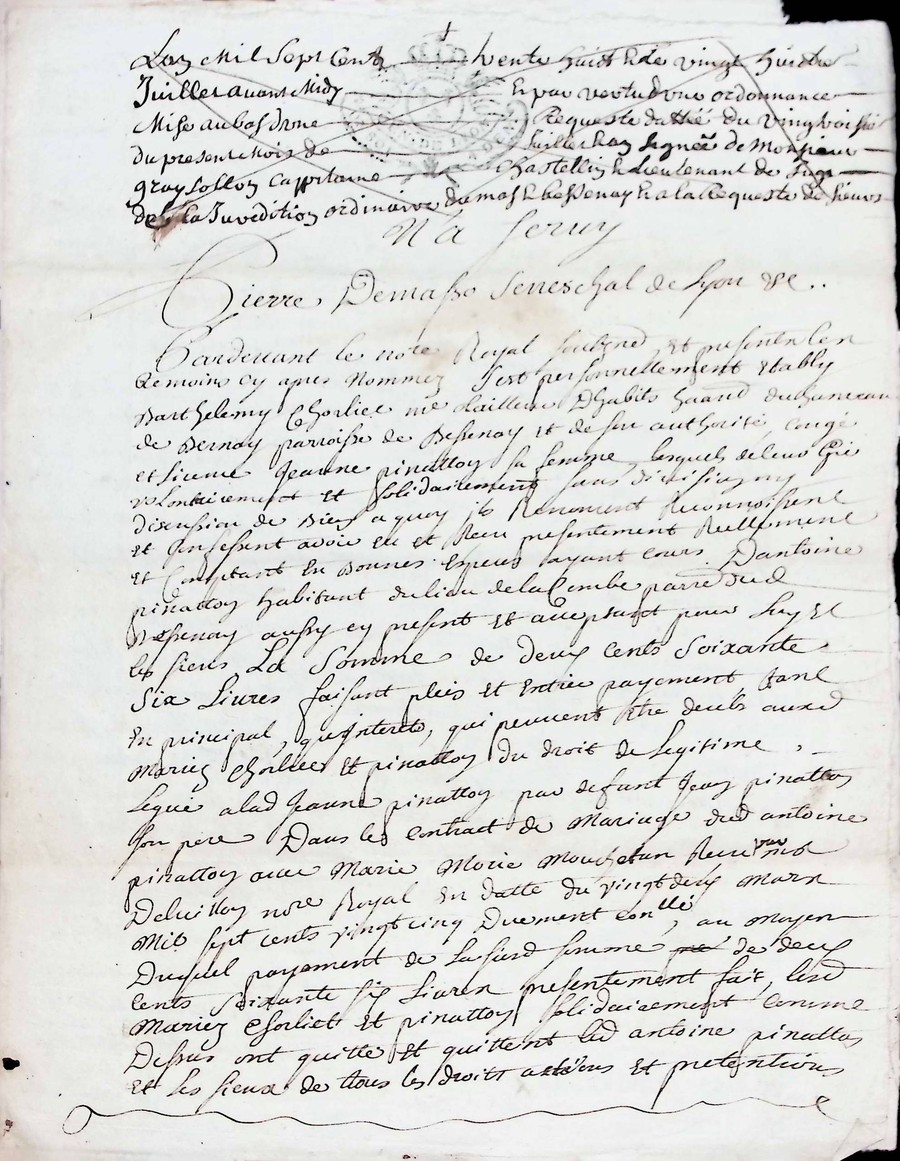 Lan Mil Sept Cent trente huit & le vingt huictie
Juillet avant Midy En par vertu dune ordonnance
Mise au bas dune Requeste dattée du vingtroisie
du present Mois de Juillet Signée de Monsieur
Cappitaine Chastellin & Lieutenant de Juge
de la Juridition ordinaire & Bessenay & a la Requeste de sieurs
N'a servy
Pierre Demasso Seneschal de Lyon &c..
Pardevant le notre Royal soubzné et présent les
temoins cy apres Nommez sest personnellement Etably
Barthelemy Chorliet me tailleur Dhabits du hameau
de Bernay parroisse de Bessenay et de son authorité, congé
et licence Jeanne pinattoy sa femme, lesquels de leur gré
volontairement et solidairement sans division ny
discution de Biens a quoy ils Renoncent Reconnoissent
et Confessent avoir eu et Receu presentement Reellement
et Comptant En Bonnes Especes ayant cours D'antoine
pinattoy habitant du lieu de la Combe parre dud
Bessenay aussy cy present et acceptant pour luy et
les siens La Somme de deux cents soixante
Six Livres faisant plein et Entier payement tant
En principal, qu'interets, qui peuvent etre deubs auxd
Mariez Chorliet et pinattoy du droit de Legitime,
Legué a lad Jeanne pinattoy par defunt Jean pinattoy
son pere Dans le contract de Mariage dud antoine
pinattoy avec Marie Morie Receu par
notre Royal En datte du vingt deux Mars
Mil sept cents vingt cinq Duement conllé, au moyen
Duquel payement de Lasusd somme de deux
cents soixante six Livres presentement fait, lesd
Mariez Chorliet et pinattoy solidairement comme
Dessus ont quitté et quittent led antoine pinattoy
et les sieux de tous les droits actions et pretentions